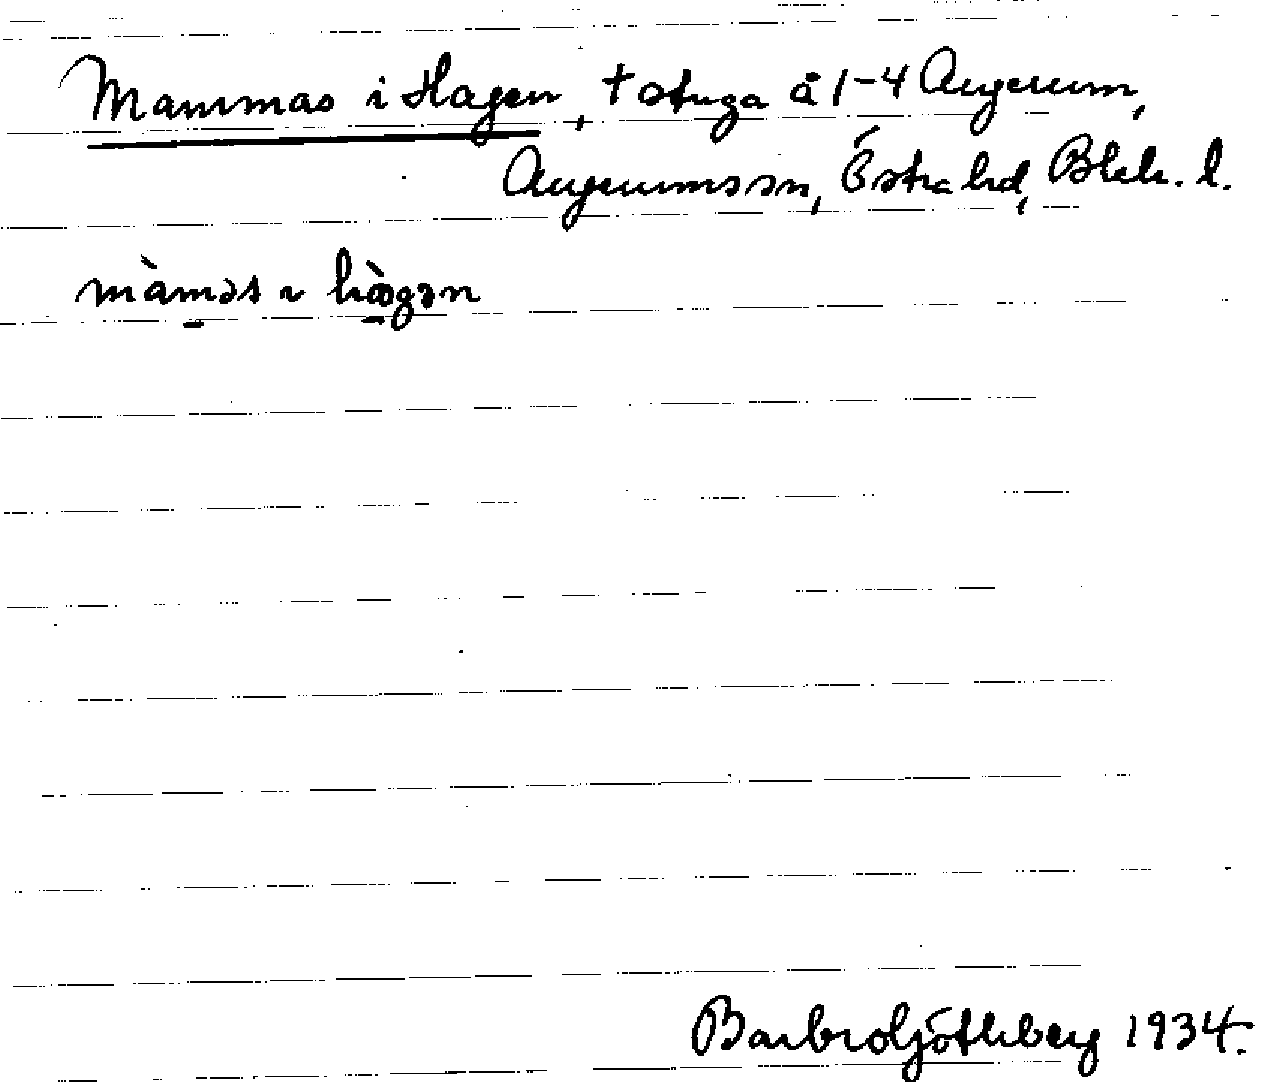 Mammas i Hagen, † stuga å 1-4 Augerum,
Augerums sn, Östra hd, Blek. l.
màməs ı hàgən
Barbro Götleberg 1934.